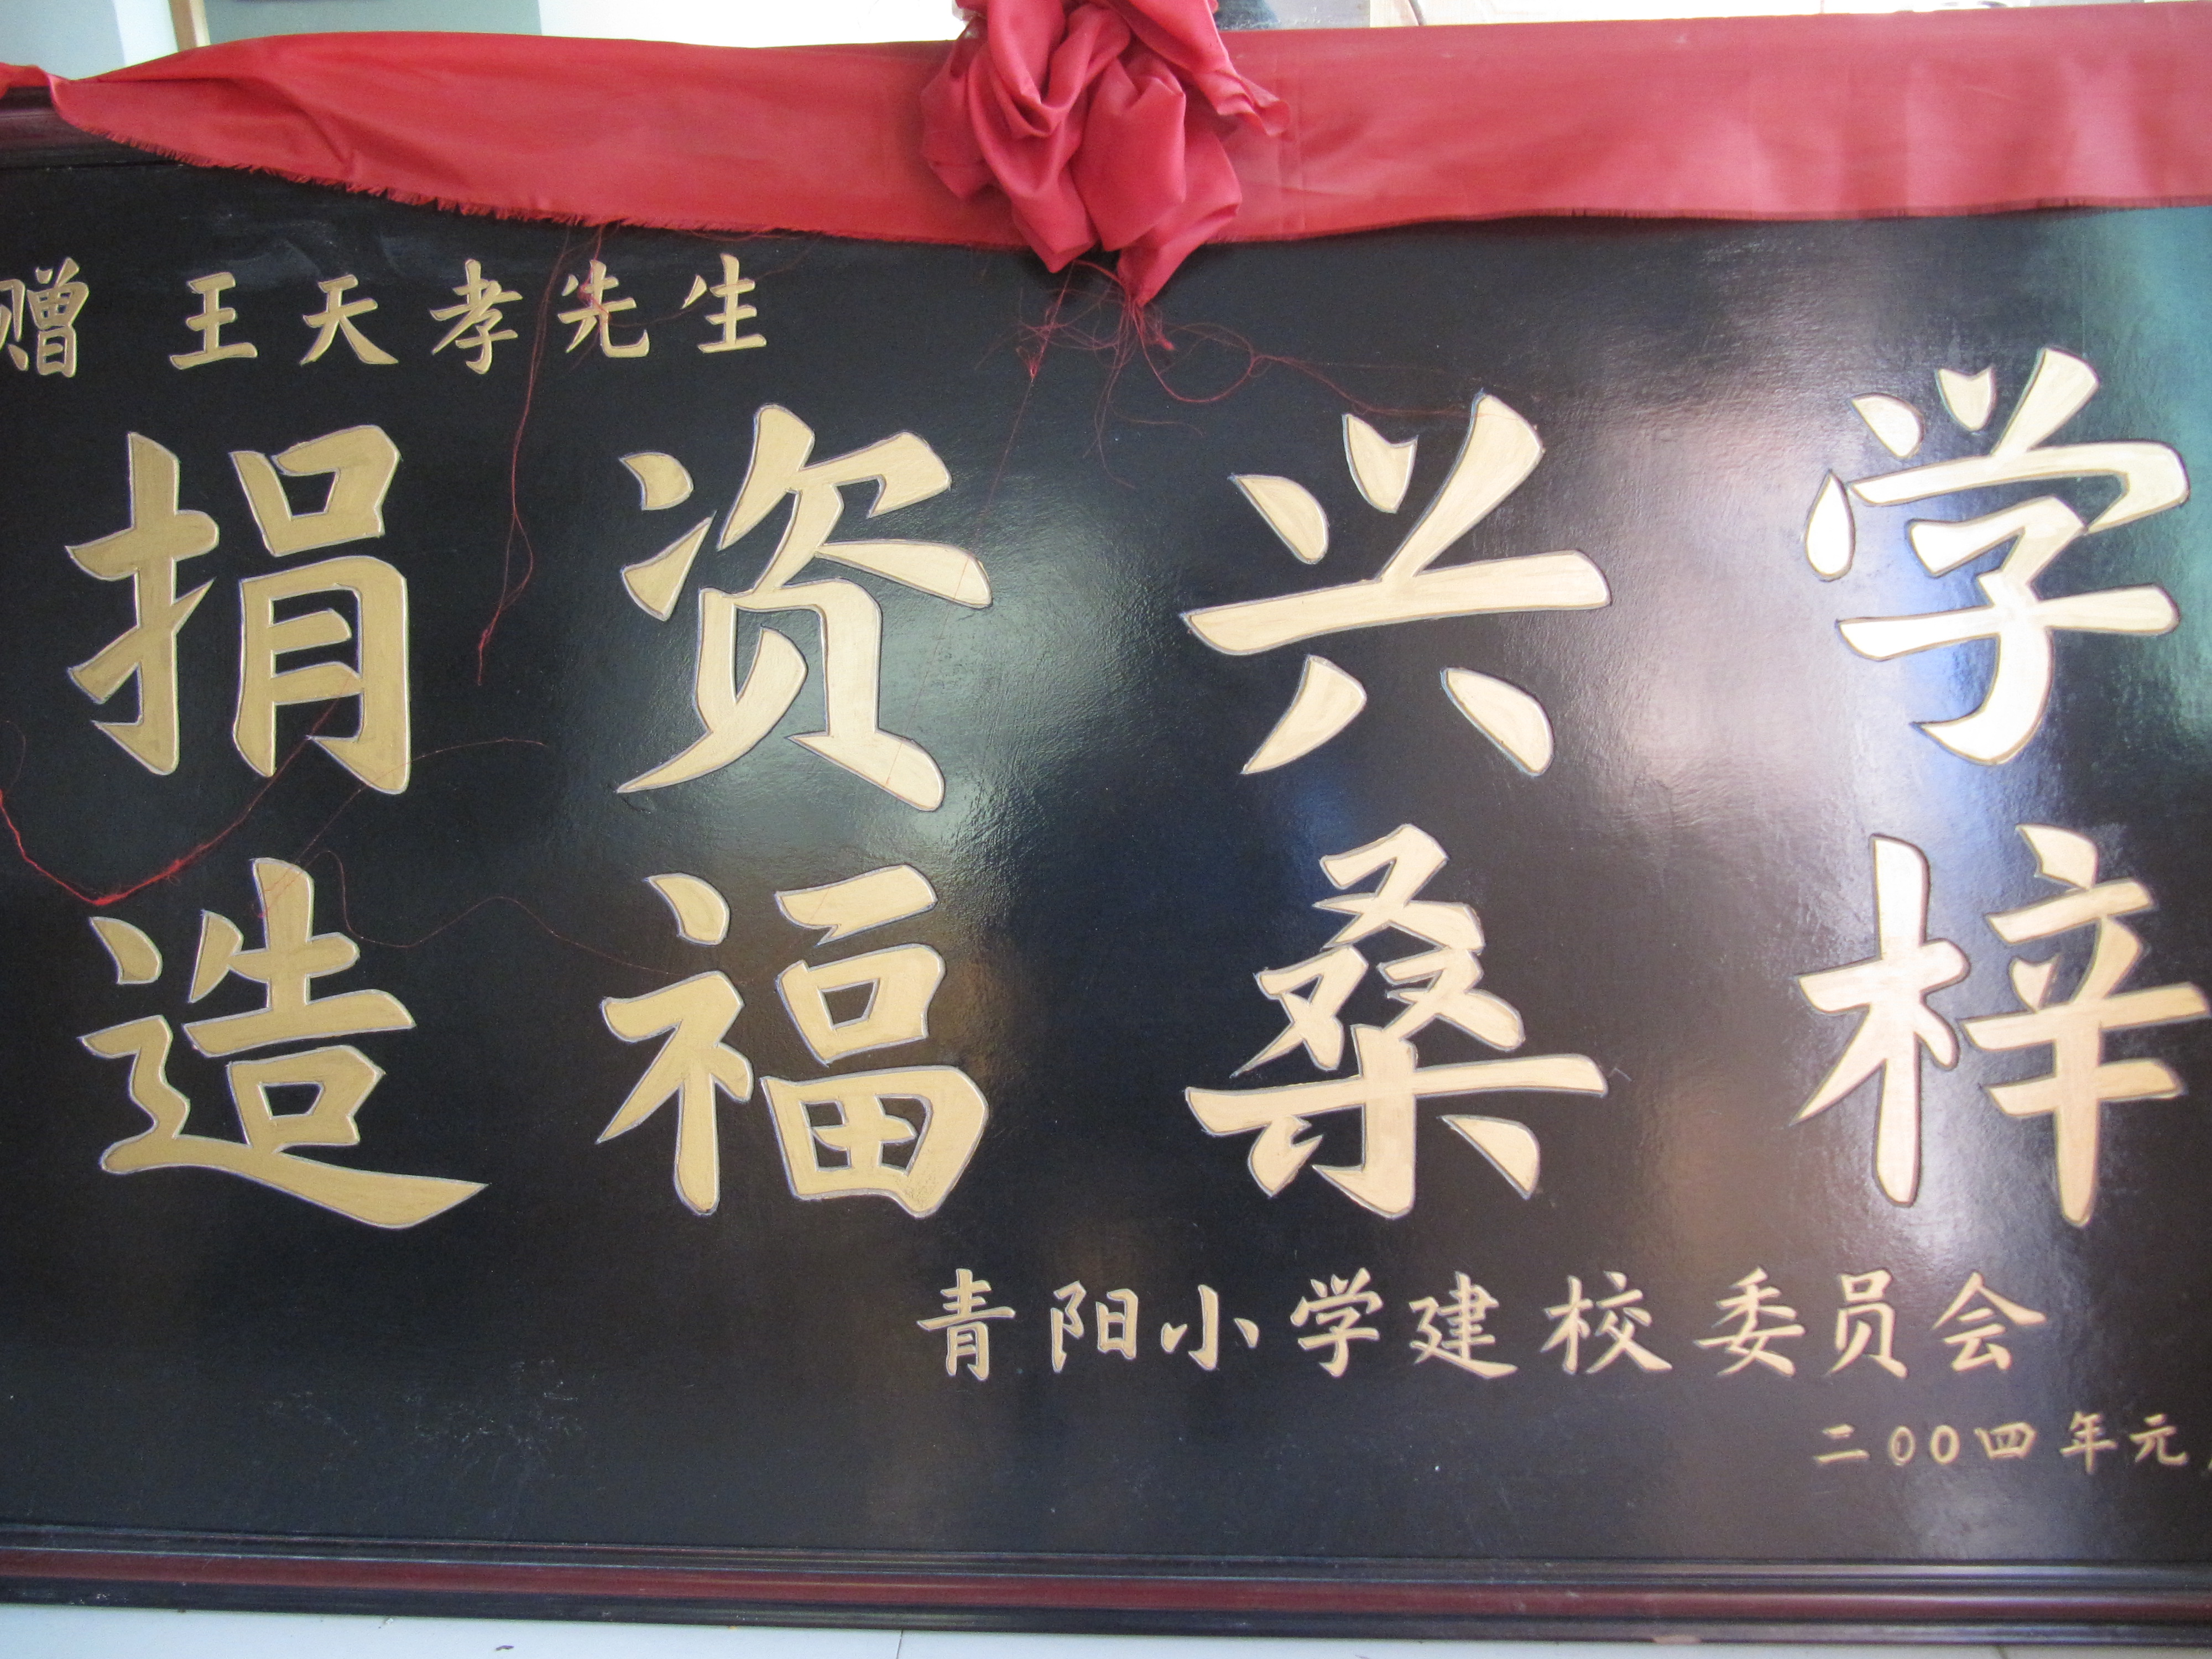 赠 王天孝先生
捐资兴学
造福桑梓
青阳小学建校委员会
二00四年元